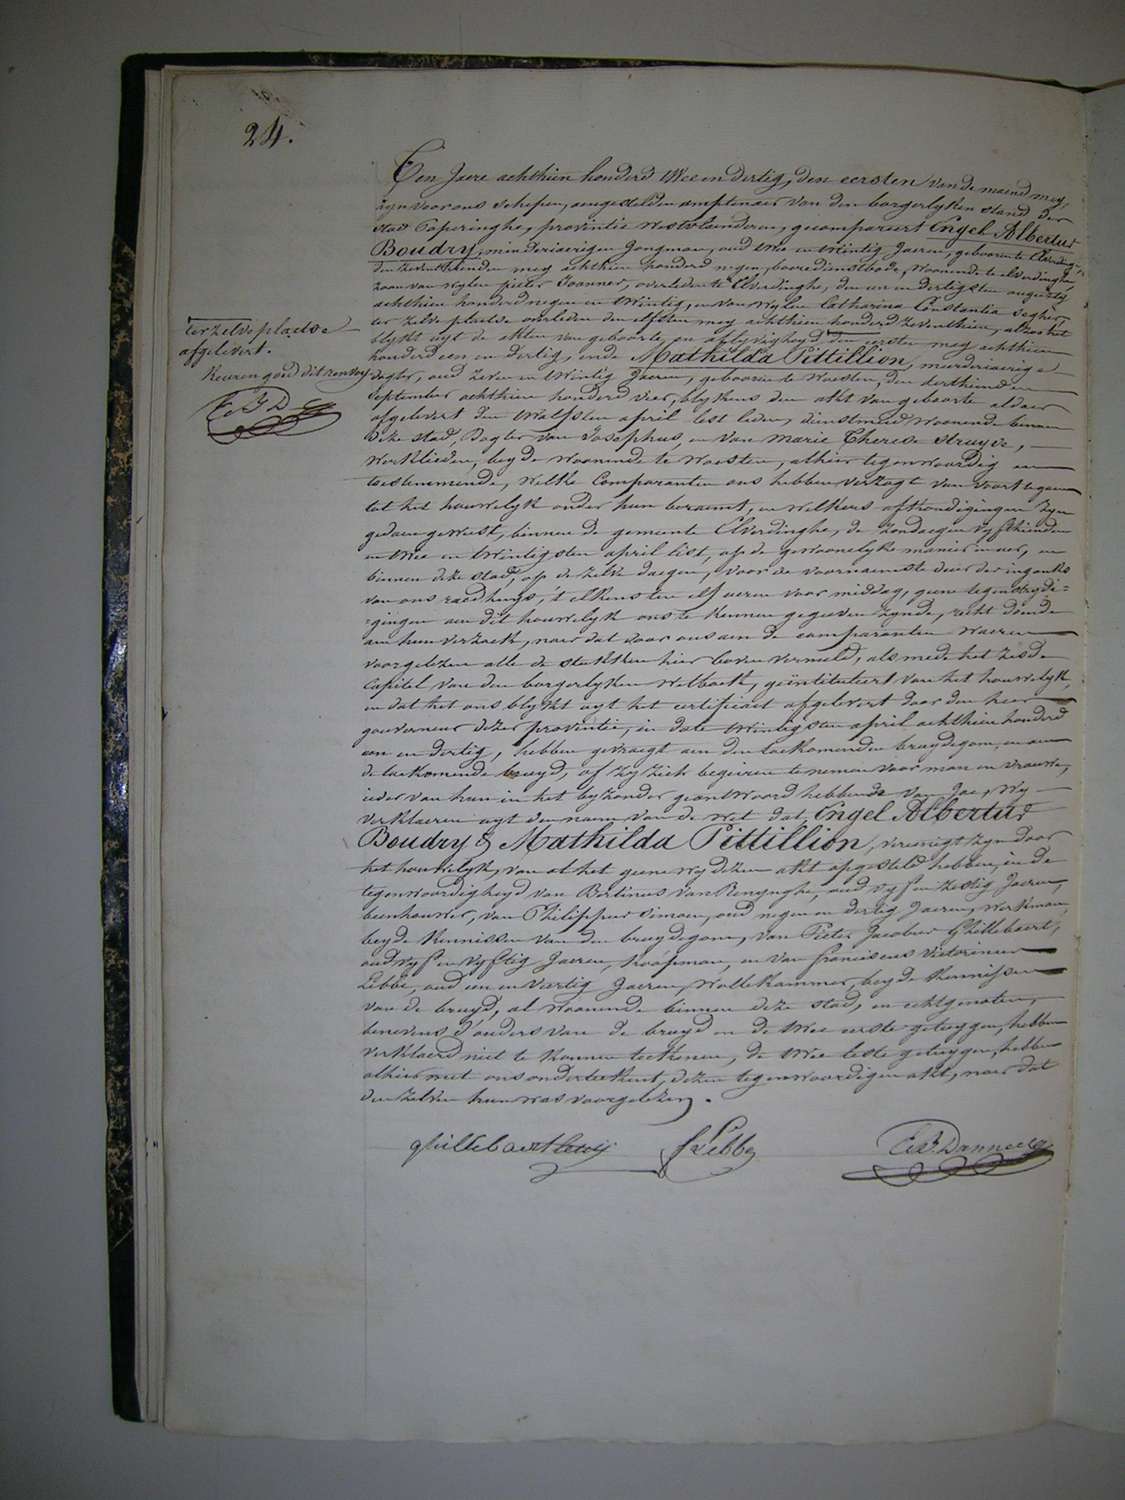 24.
Ten Jaere achthien honderd twee en dertig, den eersten van de maend mey,
zyn voor ons schepen, aengestelden amptenaer van den borgerlyken stand der
stad Poperinghe, provintie Westvlaenderen, gecompareert Engel Albertus
Boudry, minderjaerigen jongman, oud twee en twintig Jaeren, geboren te Elverdinghe
den zeventhienden mey achthien honderd negen, boeredienstbode, woonende te Elverdinghe,
zoon van wylen pieter Joannes, overleden te Elverdinghe, den een en dertigsten augusty
achthien honderd negen en twintig, en van wylen Catharina Constantia Seghers,
ter zelve plaetse overleden den elfsten mey achthien honderd zeventhien, alsoo het
blykt uyt de akten van geboorte en aflyvigheyd den eersten mey achthien
honderd een en dertig, ende Mathilda Pittillion, meerderjaerige
dogter, oud zeven en twintig Jaeren, geboren te Woesten, den derthienden
September achthien honderd vier, blykens den akt van geboorte aldaer
afgelevert den twalfsten april lest leden, dienstmeid woonende binnen
deze stad, Dogter van Josephus, en van Marie Therese Struyve,
werklieden, beyde woonende te Woesten, alhier tegenwoordig en
toestemmende, welke Comparanten ons hebben verzogt van voort te gaen
tot het houwelyk onder hun beraemt, en welkers afkondigingen zyn
gedaen geweest, binnen de gemeente Elverdinghe, de zondaegen vyfthienden
en twee en twintigsten april lest, op de gewoonelyke manier en uer, en
binnen deze stad, op de zelve daegen, voor de voornaemste deur der ingank
van ons raedhuys, t'elkens ten elf ueren voor middag, geene tegenstrydi-
gingen aen dit houwelyk ons te kennen gegeeven zynde, recht doende
aen hun verzoek, naer dat door ons aen de comparanten waeren
voorgelezen alle de stukken hier boven vermeld, als mede het zesde
Capitel van den borgerlyken Wetboek, geintituleert van het houwelyk,
en dat het ons blykt uyt het certificaet afgelevert door den heer
gouverneur dezer provintie, in date twintigsten april achthien honderd
een en dertig, hebben gevraegt aen den toekomenden bruydegom, en aen
de toekomende bruyd, of zy zich begeiren te nemen voor man en vrouwe,
ieder van hun in het byzonder geantwoord hebbende van Jae, Wy
verklaeren uyt den naem van de wet dat, Engel Albertus
Boudry & Mathilda Pittillion, vereenigt zyn door
het houwelyk, van al het geene wy dezen akt opgesteld hebben, in de
tegenwoordigheyd van Bertinus Van Renynghe, oud vyf en zestig Jaeren,
beenhouwer, van Philippus Simoen, oud negen en dertig Jaeren, werkman,
beyde kennissen van den bruydegom, van Pieter Jacobus Ghillebaert,
oud vyf en vyftig Jaeren, koopman, en van Franciscus Victorinus
Lebbe, oud een en veertig Jaeren, wollekammer, beyde kennissen
van de bruyd, al woonende binnen deze stad, en echtgenoten,
benevens d'ouders van de bruyd en de twee eerste getuygen, hebben
verklaerd niet te konnen teekenen, de twee leste getuygen, hebben
alhier met ons onderteekent, dezen tegenwoordigen akt, naer dat
den zelven hun was voorgelezen.
ter zelve plaetse
afgelevert.
Keuren goed dit renvoy
ghillebaert
Lebbe